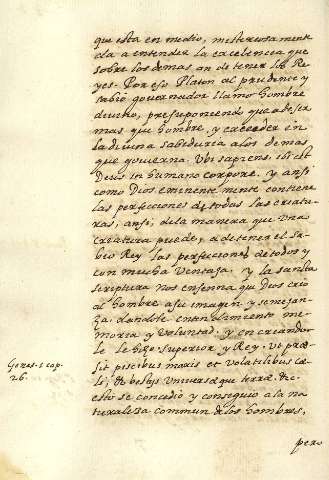 que esta en medio, misteriosamente
da a entender la excelencia que
sobre los demas an de tener los Re
yes. Por eso Platon al prudente y
sabio governador llamo hombre
divino, presuponiendo que a de ser
mas que hombre, y exceder en
la divina sabiduria a los demas
que govierna. Ubi sapiens, ibi est
Deus in humano corpore. y ansi
como Dios eminentemente contiene
las perfecciones de todas las criatu
ras, ansi, de la manera que una
criatura puede, a de tener el sa
bio Rey las perfeciones de todos y
con mucha ventaja. y la santa
scriptura nos enseña que Dios crio
al hombre a su imagen y semejan
ça, dandole entendimiento me
moria y voluntad. y en criandо
le le hizo superior y Rey. Vt præ
sit piscibus maris et volatilibus cæ
li, & bestijs universæque terræ.
esto se concedio y consiguio a la na
turaleza comun de los hombres,
Genes. 1 cap.
26.
pero